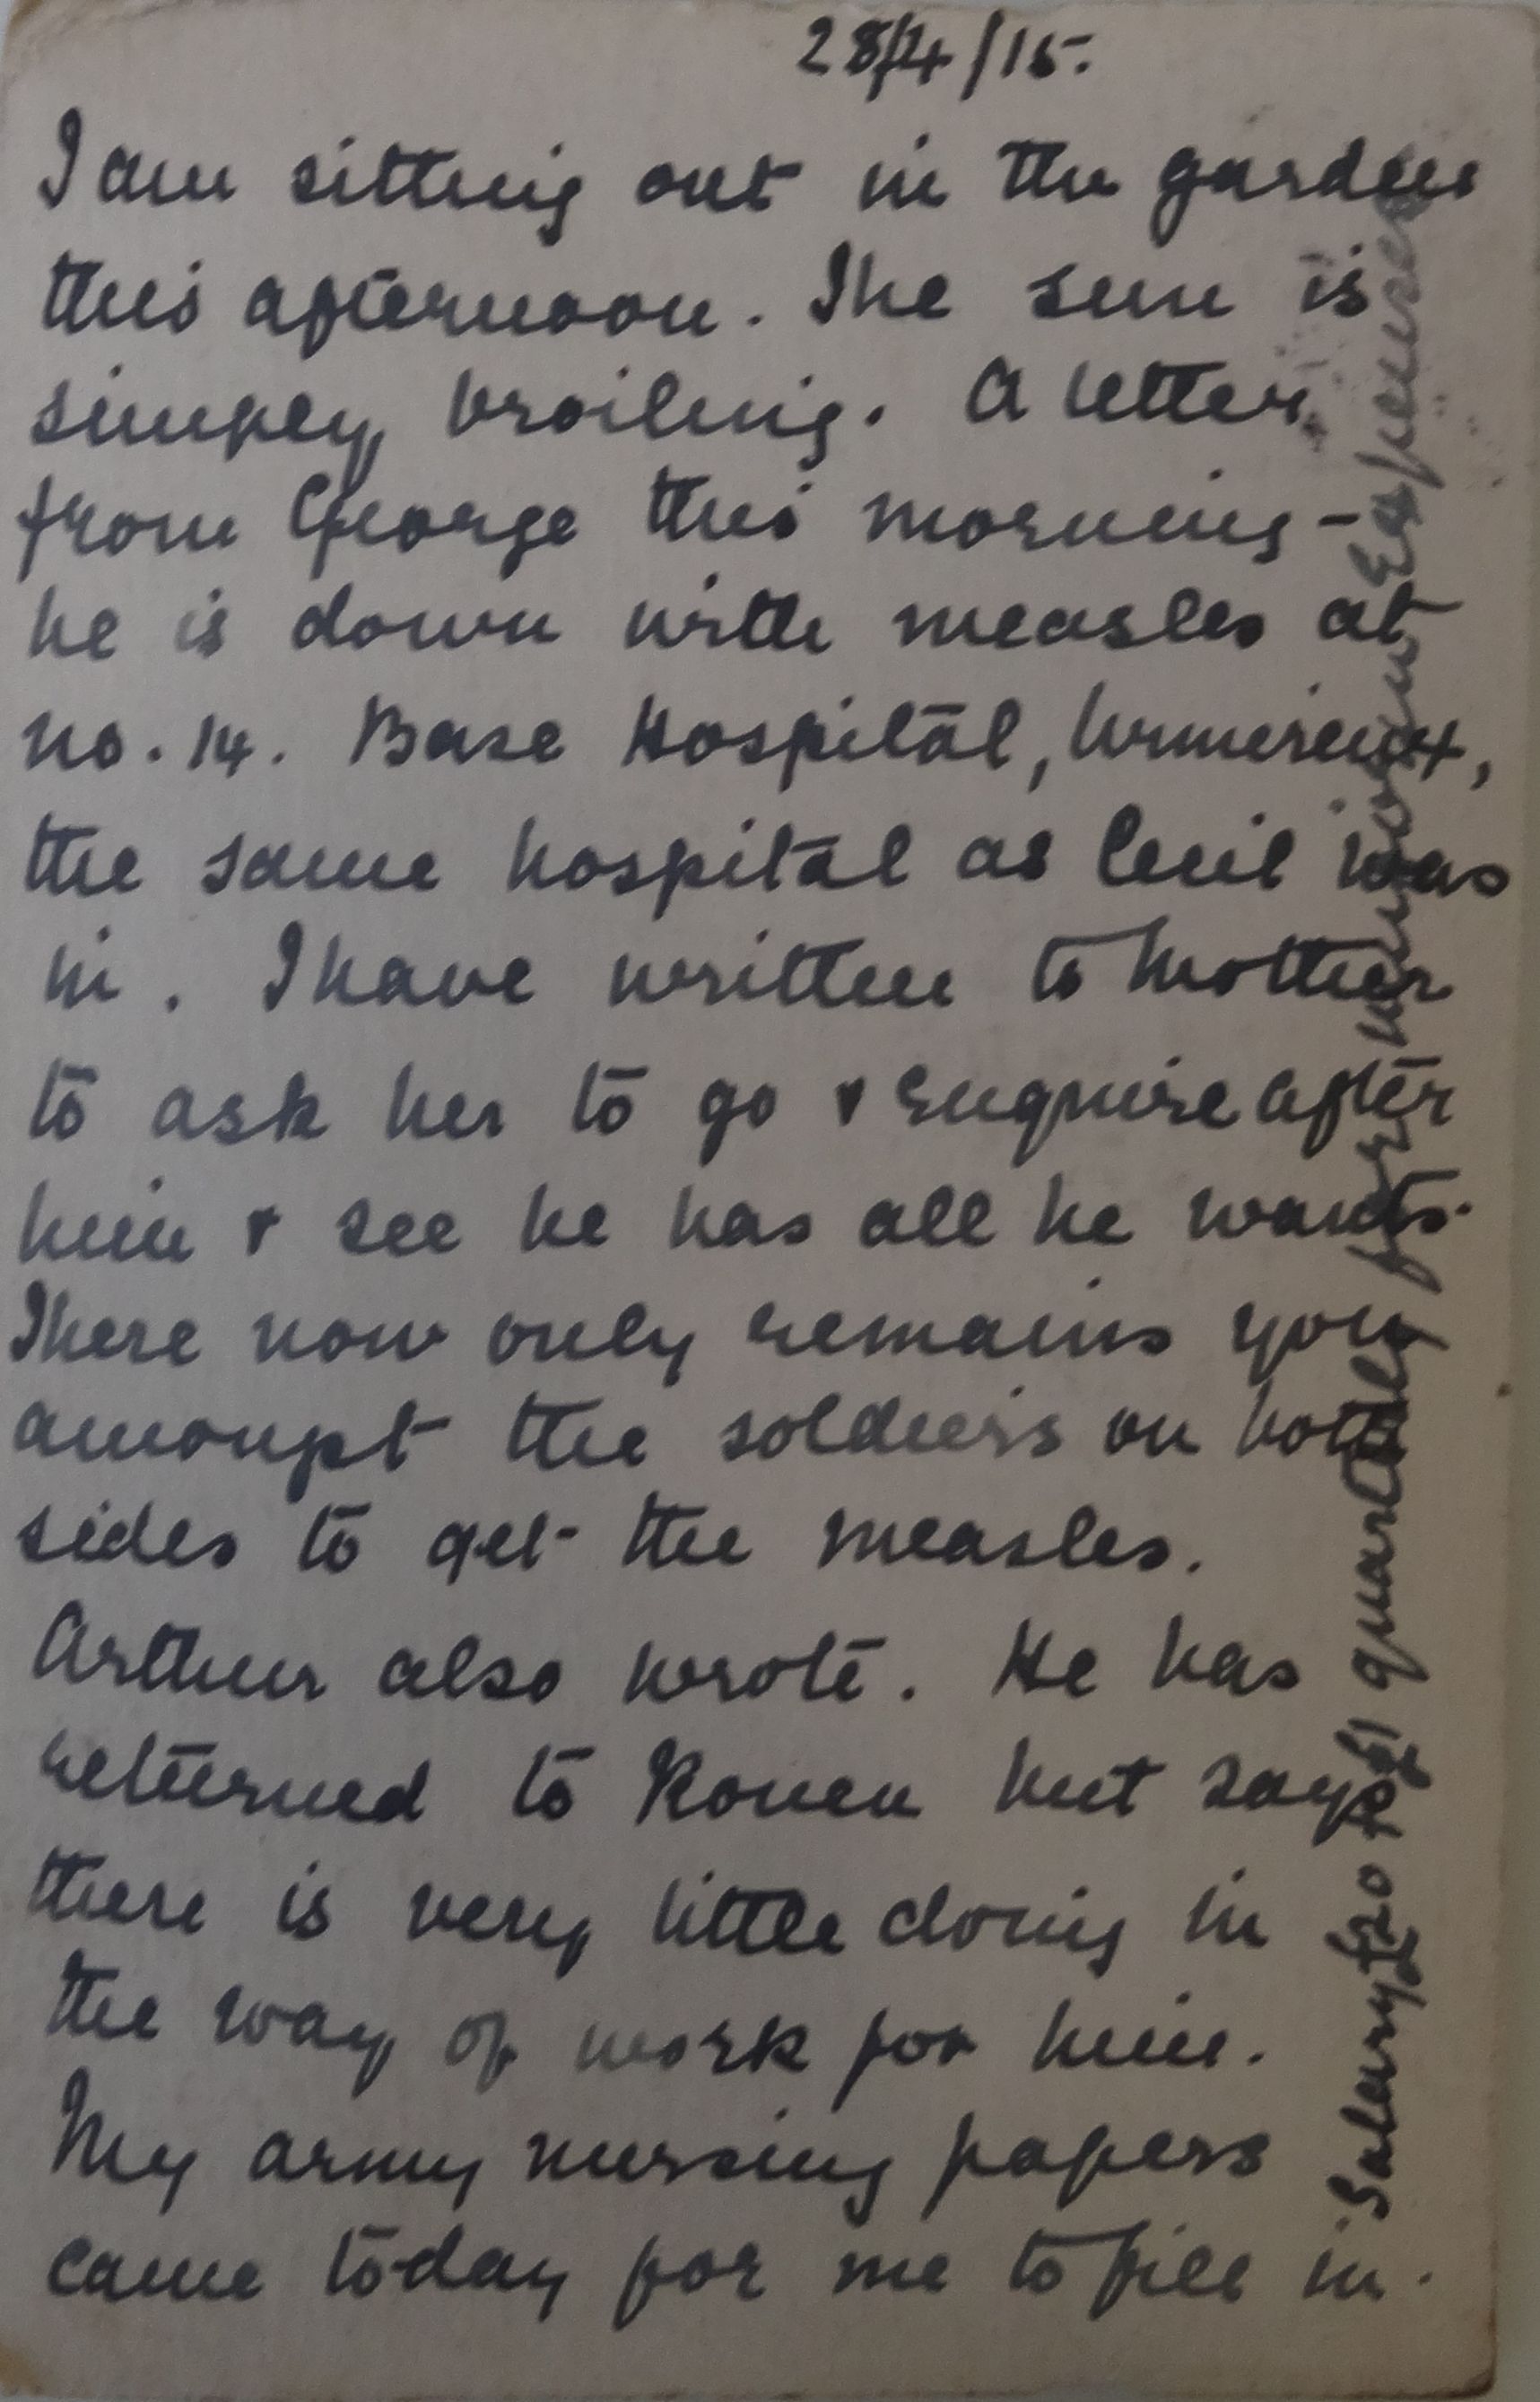 28/4/15.
I am sitting out in the garden
this afternoon. The sun is
simply broiling. A letter
from George this morning -
he is down with measles at
no. 14. Base Hospital, Wimereux,
the same hospital as Cecil was
in. I have written to Mother
to ask her to go & enquire after
him & see he has all he wants.
There now only remains you
amongst the soldiers on both
sides to get the measles.
Arthur also wrote. He has
returned to Rouen but says
there is very little doing in
the way of work for him.
My army nursing papers
came to-day for me to fill in.
Salerry £20 & £1 quarterly for